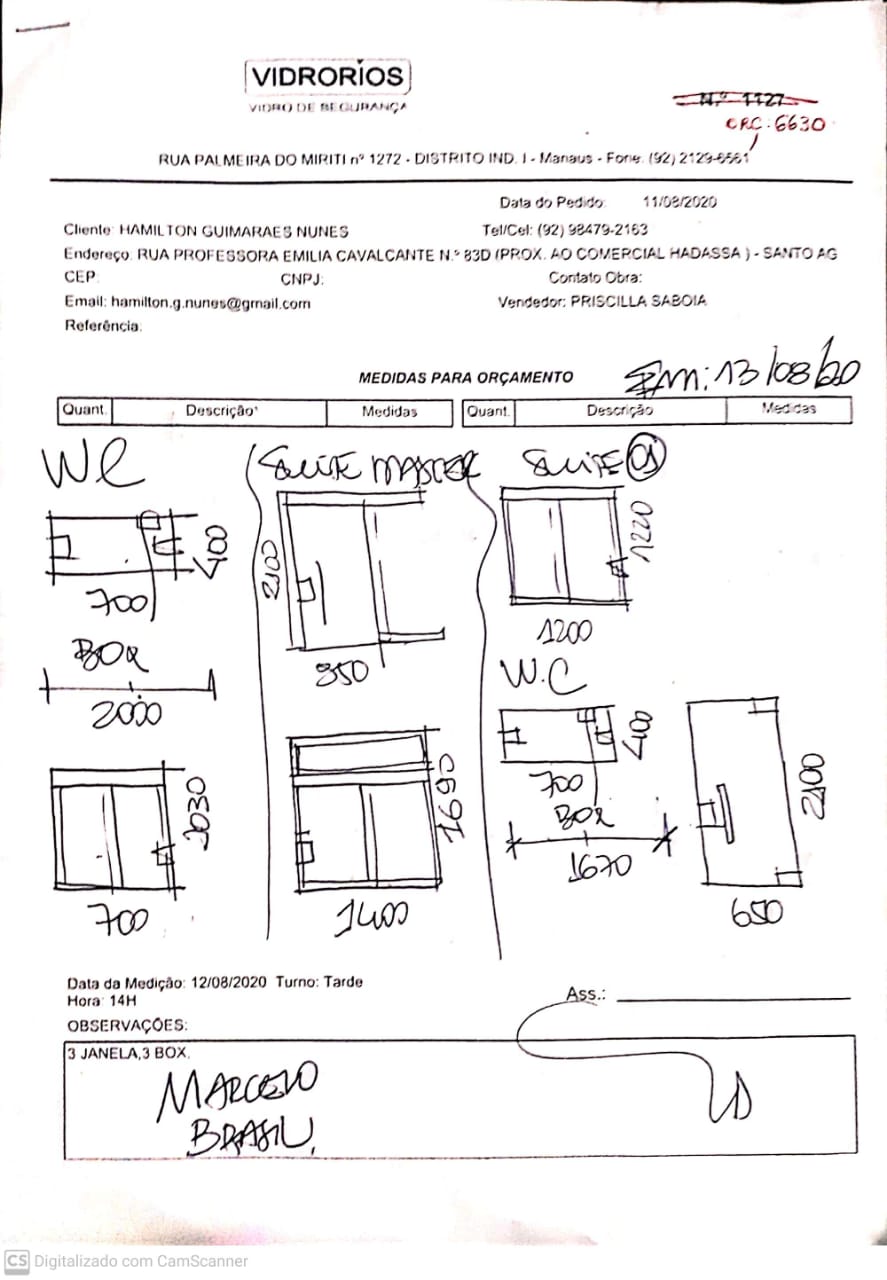 VIDRORIOS
VIDRO DE SEGURANÇA
N.º 1127
ORC: 6630
RUA PALMEIRA DO MIRITI nº 1272 - DISTRITO IND. I - Manaus - Fone: (92) 2129-6561
Data do Pedido: 11/08/2020
Cliente: HAMILTON GUIMARAES NUNES Tel/Cel: (92) 98479-2163
Endereço: RUA PROFESSORA EMILIA CAVALCANTE N.º 83D (PROX. AO COMERCIAL HADASSA ) - SANTO AG
CEP: CNPJ: Contato Obra:
Email: hamilton.g.nunes@gmail.com Vendedor: PRISCILLA SABOIA
Referência:
MEDIDAS PARA ORÇAMENTO
EM: 13/08/20
Quant. Descrição Medidas Quant. Descrição Medidas
WC
400
700
BOX
2000
700
SUITE MASTER
2100
1690
1400
SUITE 01
1220
1200
W.C
400
700
BOX
1670
2100
650
Data da Medição: 12/08/2020 Turno: Tarde
Hora: 14H
Ass.:
OBSERVAÇÕES:
3 JANELA,3 BOX.
MARCELO
BRASIL
CS Digitalizado com CamScanner